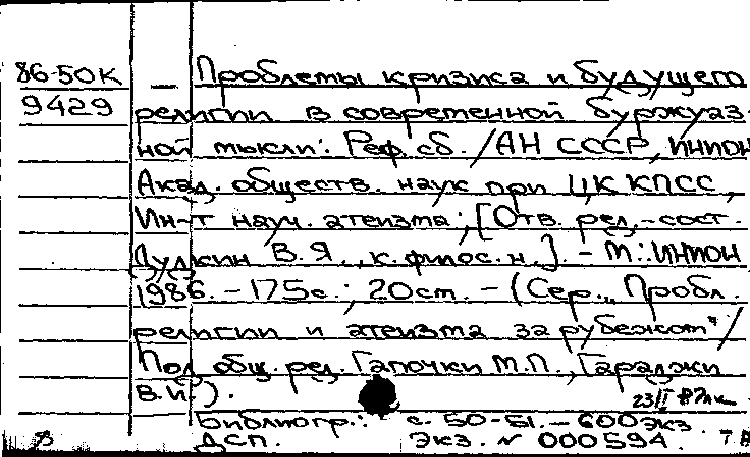 86-50К
9429
— Проблемы кризиса и будущего
религии в современной буржуаз-
ной мысли: Реф. сб. / АН СССР, ИНИОН
Акад. обществ. наук при ЦК КПСС,
Ин-т науч. атеизма; [Отв. ред.-сост.
В.Я., к. филос. н.]. – М.: ИНИОН
1986. – 175с.; 20см. – (Сер. „Пробл.
религии и атеизма за рубежом" /
Под общ. ред. Гапочки М.П., Гараджи
В.И.).
23/II 87
Библиогр.: с. 50-51. – 600экз.
ДСП. Экз. № 000594.